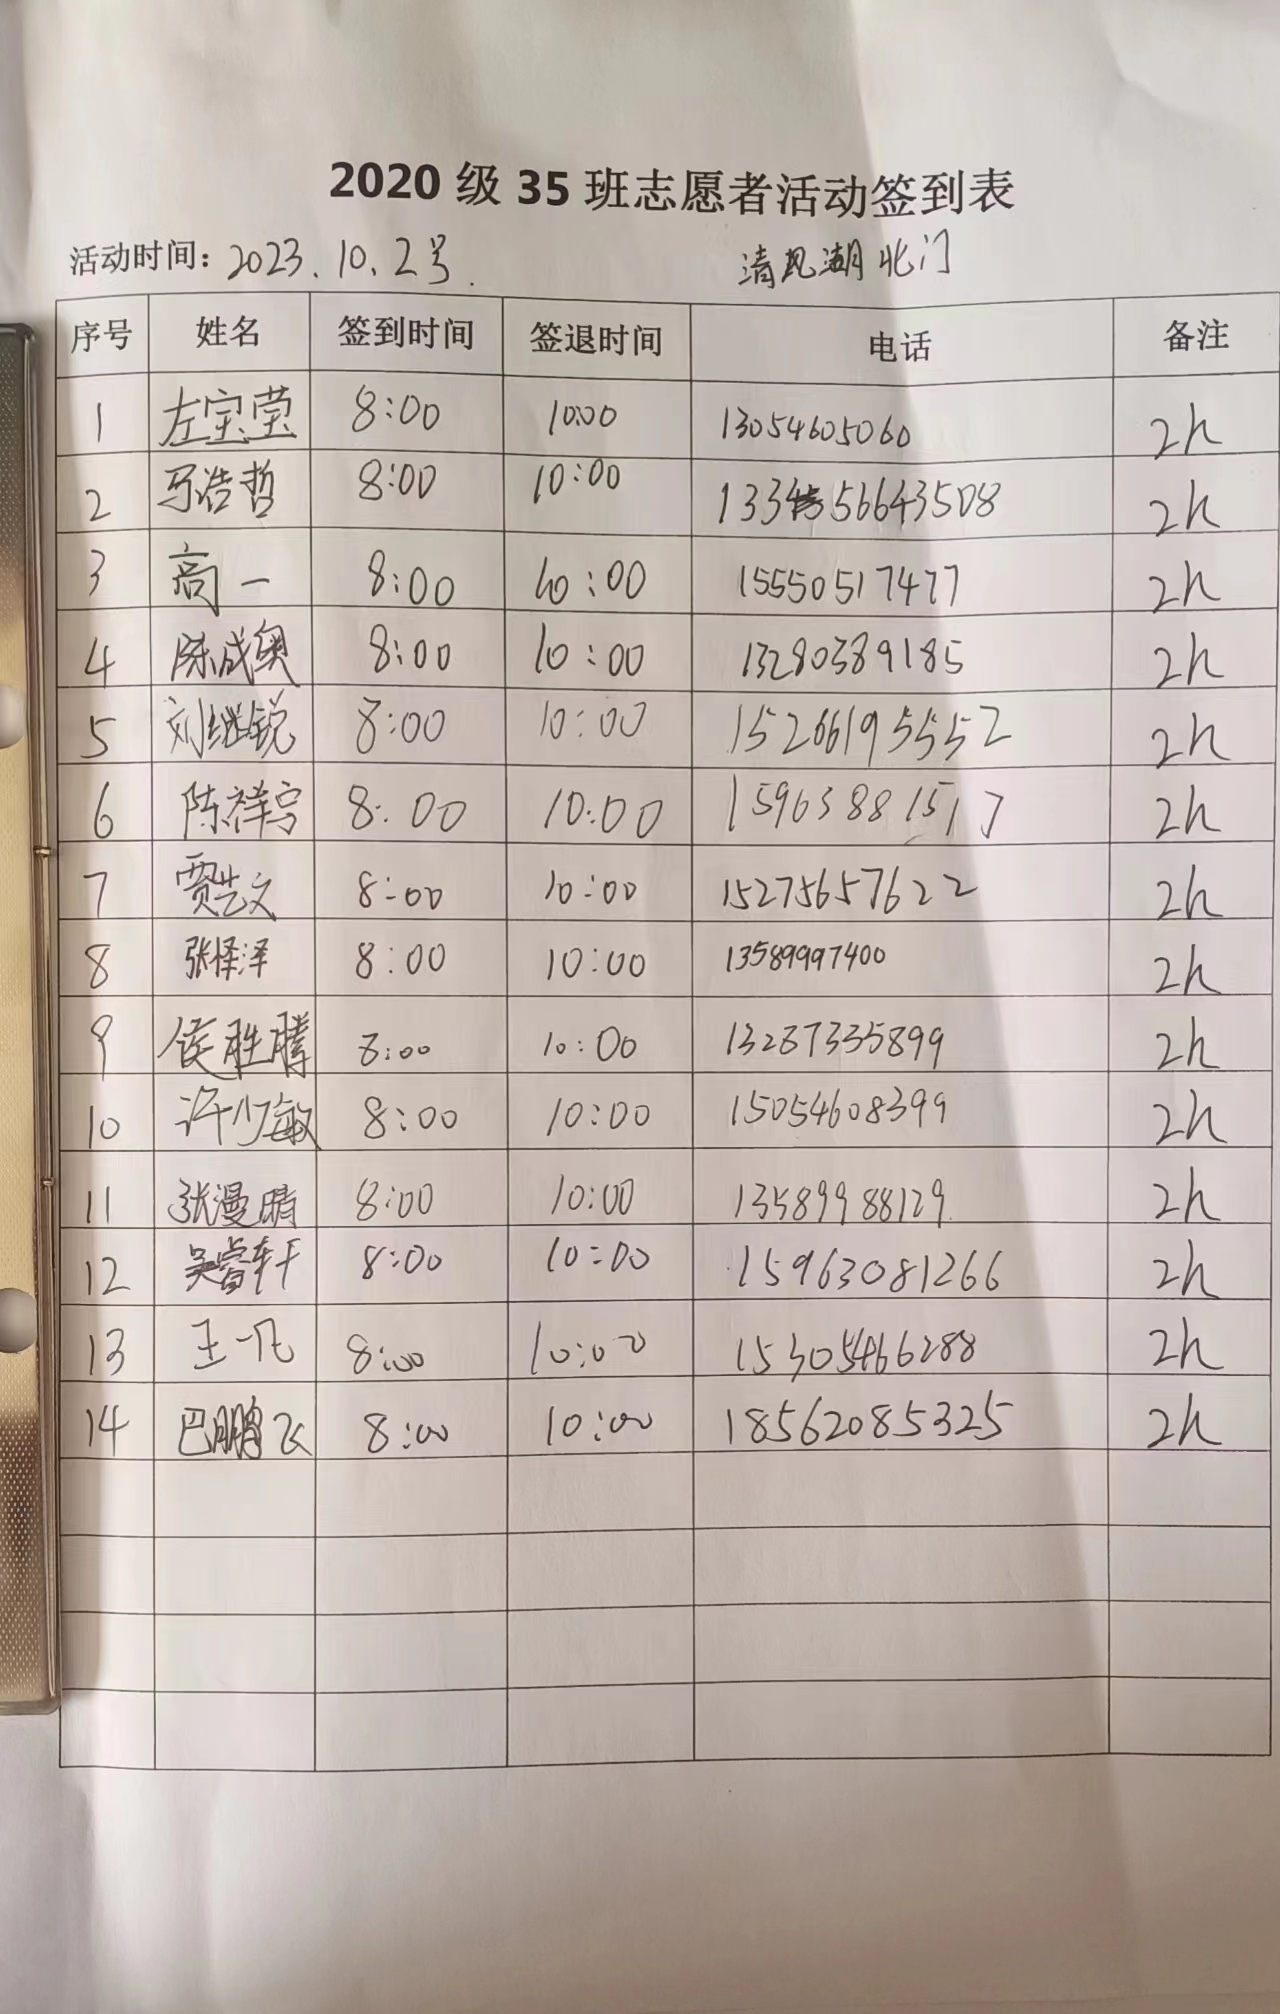 2020 级 35 班志愿者活动签到表
活动时间：2023.10.2号. 清风湖北门
序号 姓名 签到时间 签退时间 电话 备注
1 左宝莹 8:00 10:00 13054605060 2h
2 马浩哲 8:00 10:00 133 56643508 2h
3 高一 8:00 10:00 15550517477 2h
4 陈成奥 8:00 10:00 13280389185 2h
5 刘继锐 8:00 10:00 15266195552 2h
6 陈祥宇 8:00 10:00 15963881517 2h
7 贾艺文 8:00 10:00 15275657622 2h
8 张怿泽 8:00 10:00 13589997400 2h
9 侯胜腾 8:00 10:00 13287335899 2h
10 许少敏 8:00 10:00 15054608399 2h
11 张漫晴 8:00 10:00 13589988129 2h
12 吴睿轩 8:00 10:00 15963081266 2h
13 王一凡 8:00 10:00 15305466288 2h
14 巴鹏飞 8:00 10:00 18562085325 2h